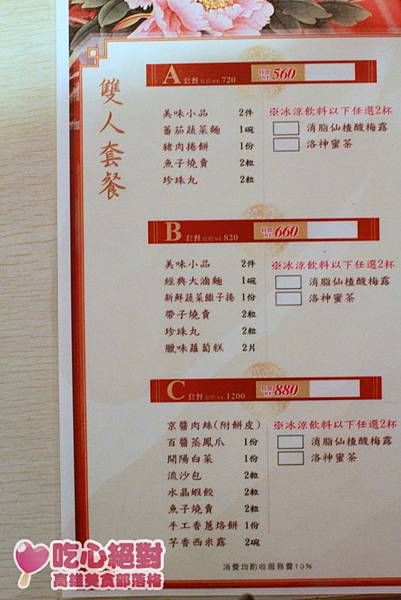 雙人套餐
A 套餐 原價 NT$ 720 特價 NT$ 560
美味小品 2件
蕃茄蔬菜麵 1碗
豬肉捲餅 1份
魚子燒賣 2粒
珍珠丸 2粒
※冰涼飲料以下任選2杯
消脂仙楂酸梅露
洛神蜜茶
B 套餐 原價 NT$ 820 特價 NT$ 660
美味小品 2件
經典大滷麵 1碗
新鮮蔬菜餡子捲 1份
帶子燒賣 2粒
珍珠丸 2粒
臘味蘿蔔糕 2片
※冰涼飲料以下任選2杯
消脂仙楂酸梅露
洛神蜜茶
C 套餐 原價 NT$ 1200 特價 NT$ 880
京醬肉絲(附餅皮)
百醬蒸鳳爪 1份
開陽白菜 1份
流沙包 2粒
水晶蝦餃 2粒
魚子燒賣 2粒
手工香蔥烙餅 1份
芋香西米露 2碗
※冰涼飲料以下任選2杯
消脂仙楂酸梅露
洛神蜜茶
消費均酌收服務費10%
吃心絕對
高雄美食部落格